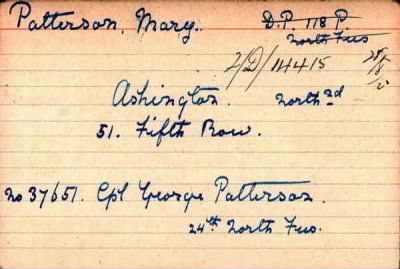 Patterson, Mary. D.P. 118 P.
North Fus
2/D/14415
Ashington. North'd
51. Fifth Row.
No 37651. Cpl George Patterson.
24th North Fus.